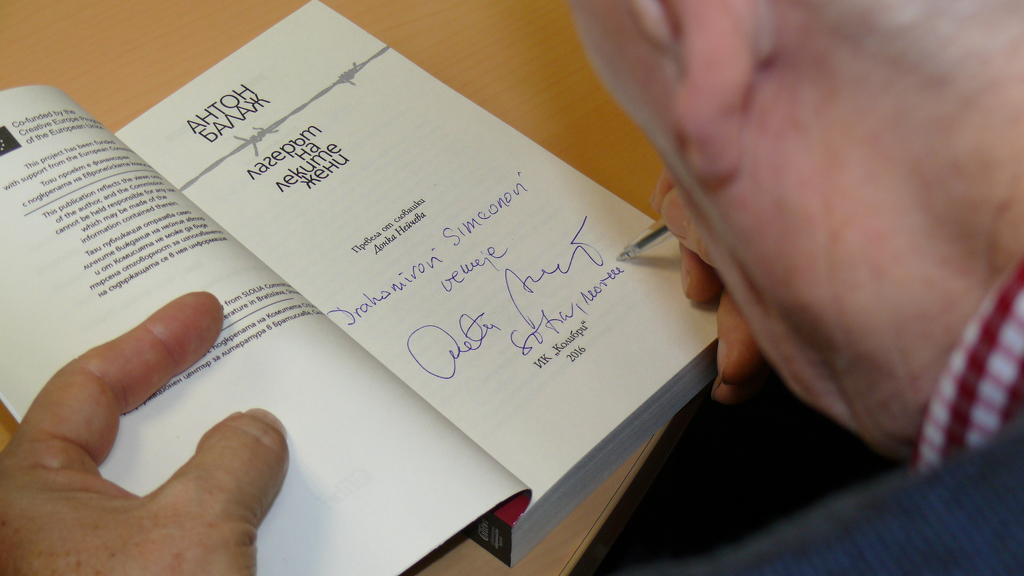 Co-funded by the
Creative Europe
of the European
This project has been funded
with support from the European
Този проект е финансиран
с подкрепата на Европейската
This publication reflects the views
of the author, and the Commission
cannot be held responsible for any
which may be made of the
information contained therein.
Тази публикация отразява само
личните виждания на нейния автор
и от Комисията не може да бъде
търсена отговорност за
на съдържащата се в информация
from SLOLIA
in Bratislava
подкрепата на
център за литература в Братислава
АНТОН
БАЛАЖ
лагерът
на
леките
жени
Превела от словашки
Донка Нейчева
Drahomírovi Simeonovi
venuje
ИК „Колибри“
2016